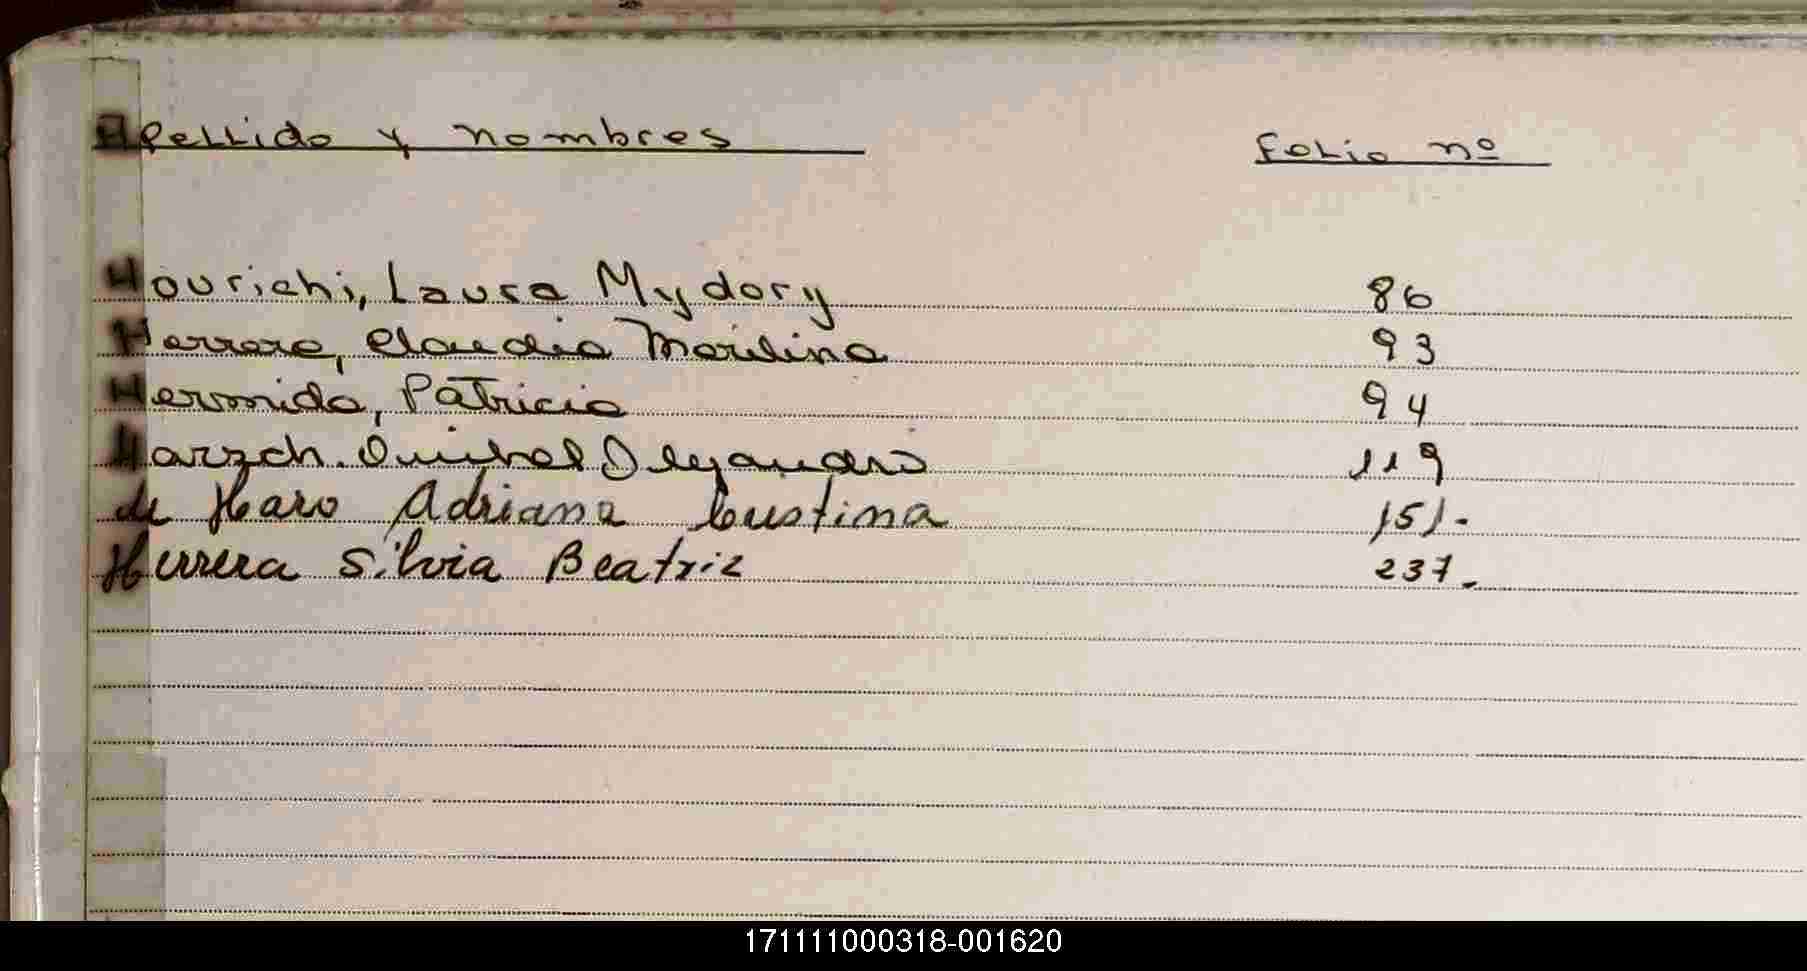 Apellido y nombres Folio nº
Hourichi, Laura Mydory 86
Herrera, Claudia Marilina 93
Hermida, Patricia 94
Alejandro 119
de Haro Adriana Cristina 151.
Herrera Silvia Beatriz 237.
171111000318-001620